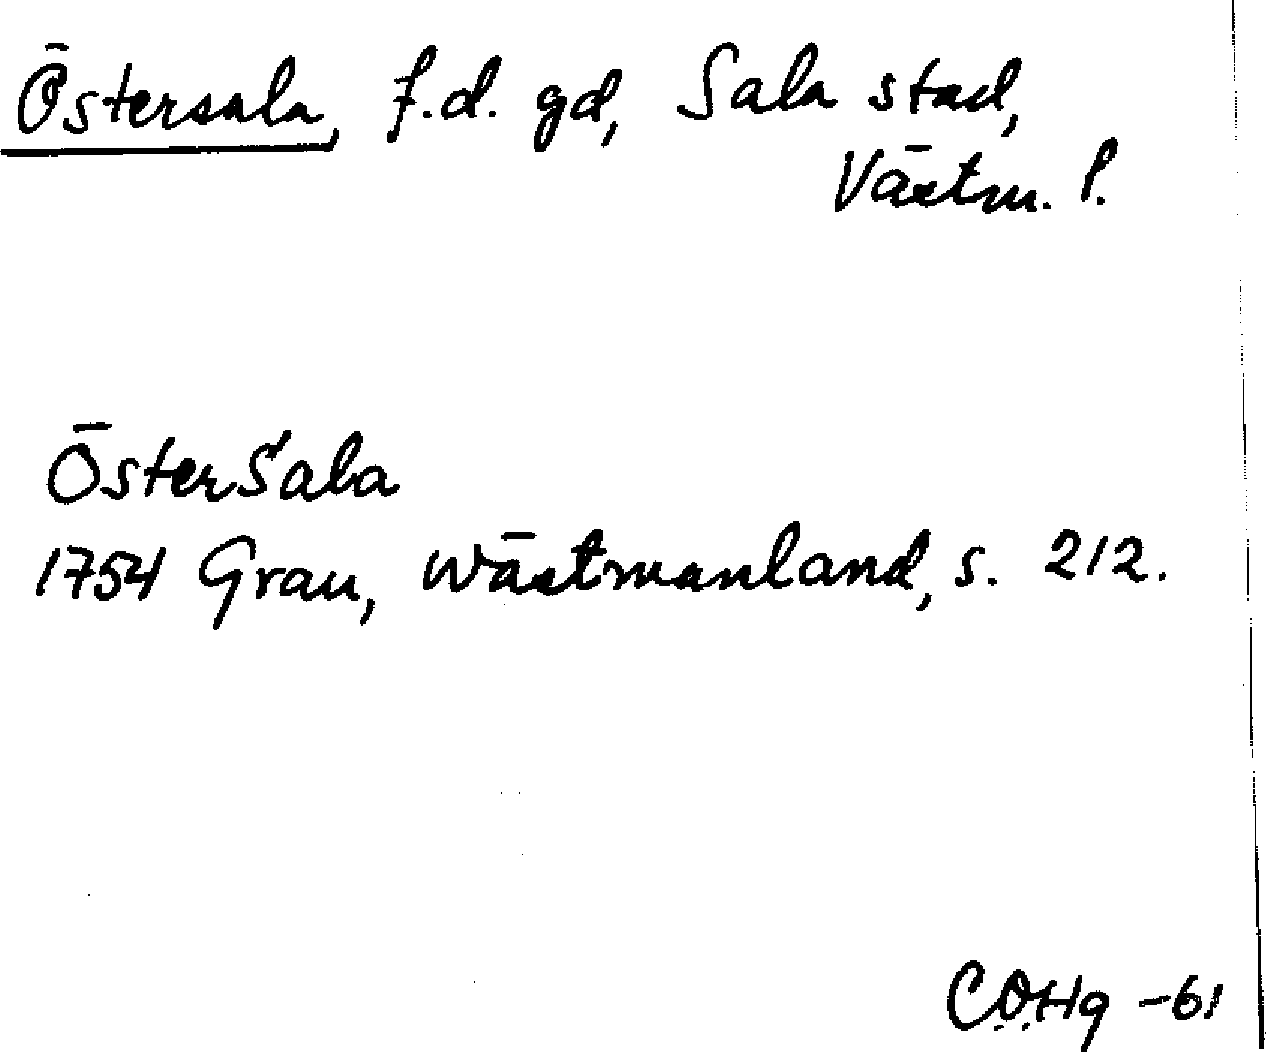 Östersala, f.d. gd, Sala stad,
Västm. l.
ÖsterSala
1754 Grau, Wästmanland, s. 212.
COHg -61